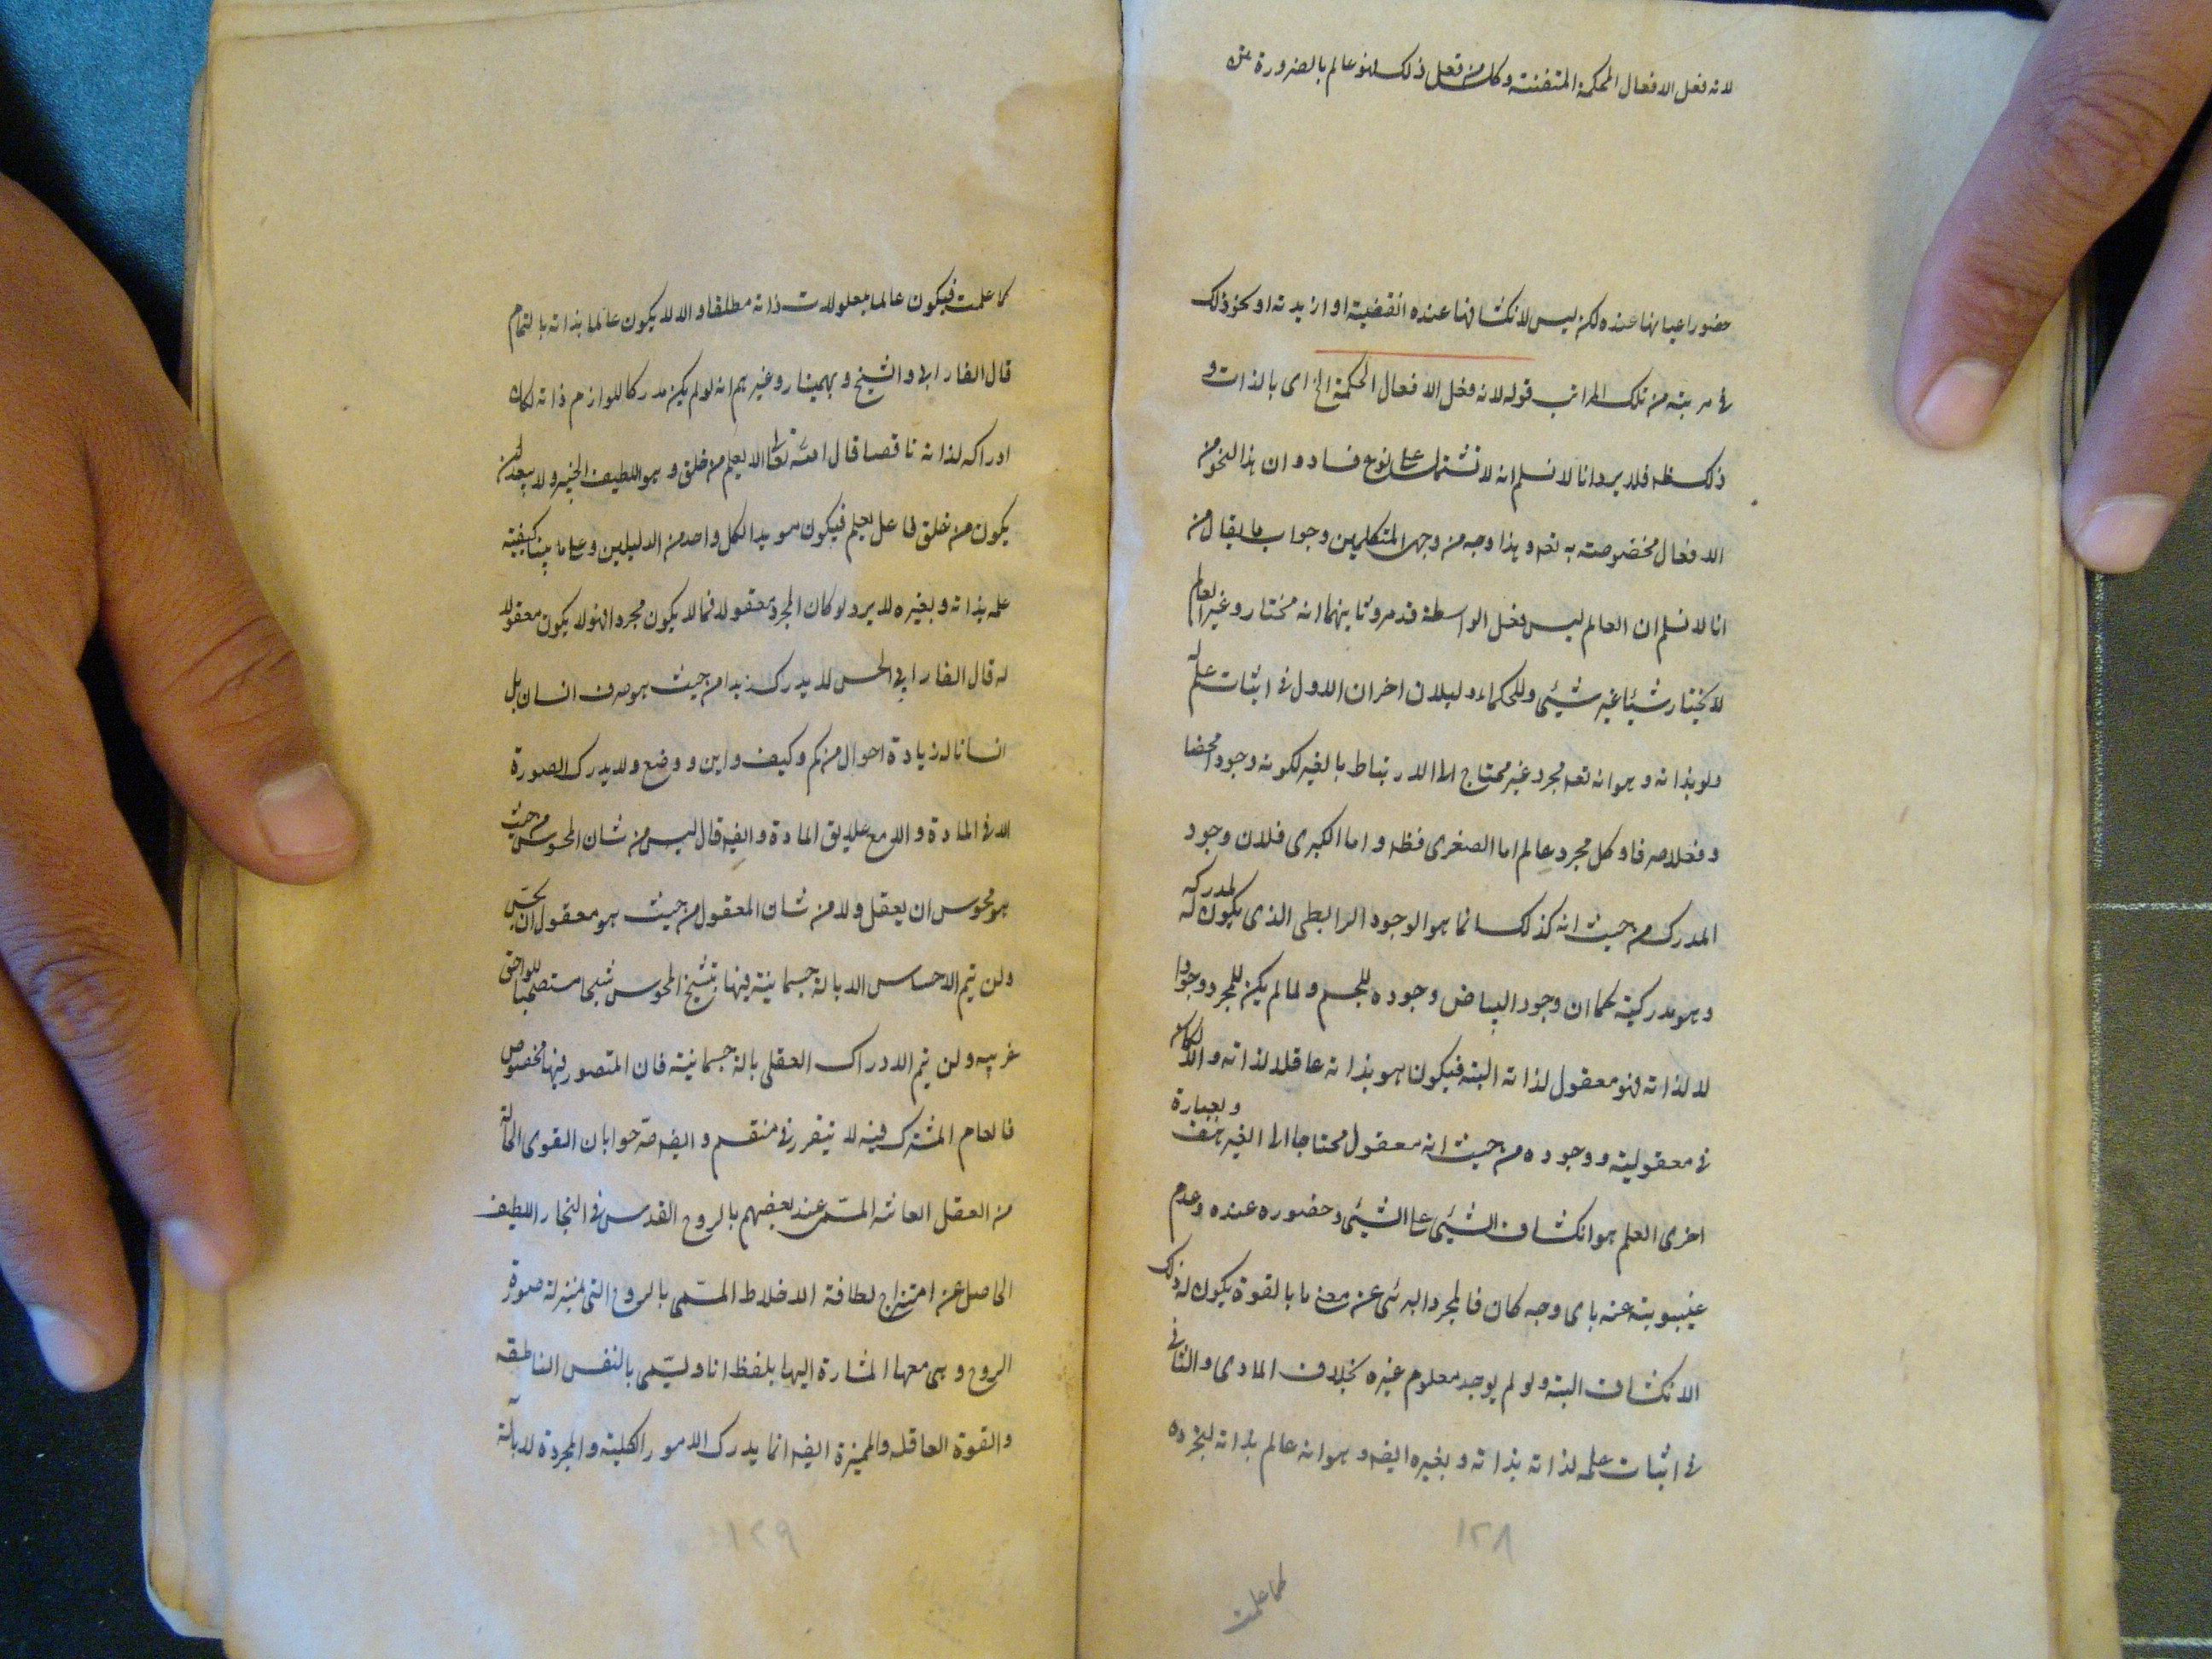 لانه فعل الافعال المحكمة المتقنة وكل من فعل ذلك فهو عالم بالضرورة متن
حضور اعيانها عنده لكن ليس لانكشافها عنده انقضية او ازيدية او نحو ذلك
فى مرتبته من تلك المراتب قوله لانه فعل الافعال المحكمة الخ اى بالذات و
ذلك ظ فلا يرد انا لا نسلم انه لا تشتمل على نوع فساد وان هذا النحو من
الافعال مخصوصة به تعه وهذا وجه من وجهى المتكلمين وجواب ما يقال من
انا لا نسلم ان العالم ليس فعل الواسطة قد مر وثانيهما انه مختار وغير العالم
لا يختار شيئا غير شيئى وللحكماء دليلان اخران الاول فى اثبات علمه
ولو بذاته وهو انه تعه مجرد غير محتاج الى الارتباط بالغير لكونه وجودا محضا
وفعلا صرفا وكل مجرد عالم اما الصغرى فظه واما الكبرى فلان وجود
المدرك من حيث انه كذلك انما هو الوجود الرابطى الذى يكون له لمدركه
وهو مدركيته كما ان وجود البياض وجوده للجسم ولما لم يكن للمجرد وجودا
لا لذاته فهو معقول لذاته البته فيكون هو بذاته عاقلا لذاته والا لكان
فى معقوليته ووجوده من حيث انه معقول محتاجا الى الغير هف وبعبارة
اخرى العلم هو انكشاف الشيئى على الشيئى وحضوره عنده وعدم
غيبوبته عنه باى وجه كان فالمجرد البرئى عن معنى ما بالقوة يكون له ذلك
الانكشاف البته ولو لم يوجد معلوم غيره بخلاف المادى والثانى فى
فى اثبات علمه لذاته بذاته وبغيره ايضه وهو انه عالم بذاته لتجرده
١٢٨
كما علمت
كما علمت فيكون عالما بمعلولات ذاته مطلقا والا لا يكون عالما بذاته بالتمام
قال الفارابى والشيخ وبهمنيار وغيرهم انه لو لم يكن مدركا للوازم ذاته لكان
ادراكه لذاته ناقصا قال الله تعالى الا يعلم من خلق وهو اللطيف الخبير ولا يبعد ان
يكون من خلق فاعل يعلم فيكون مويدا لكل واحد من الدليلين وعلى ما بينا كيفية
علمه بذاته وبغيره لا يرد لو كان المجرد معقولا فما لا يكون مجردا فهو لا يكون معقولا
له قال الفارابى الحس لا يدرك زيدا من حيث هو صرف انسان بل
انسانا له زيادة احوال من كم وكيف واين ووضع ولا يدرك الصورة
الا فى المادة والا مع علايق المادة وايضه قال ليس من شان المحسوس من حيث
هو محسوس ان يعقل ولا من شان المعقول من حيث هو معقول ان يحس
ولن يتم الاحساس الا بالة جسمانية فيها يتشبح المحسوس شبحا مستصحبا للواحق
غريبه ولن يتم الادراك العقلى بالة جسمانية فان المتصور فيها مخصوص
فالعام المشترك فيه لا يتقرر فى منقسم وايضه صرحوا بان القوى الحالة
من العقل العاشر المسمى عند بعضهم بالروح القدس فى البخار اللطيف
الحاصل عن امتزاج لطافة الاخلاط المسمى بالروح التى بمنزلة صورة
الروح وهى معها المشارة اليها بلفظ انا ويسمى بالنفس الناطقه
والقوة العاقلة والمميزة ايضه انما يدرك الامور الكلية والمجردة لا بآلة
١٢٩